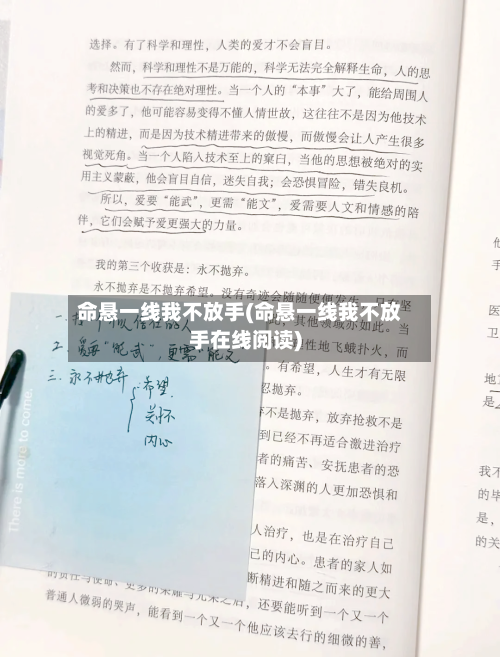 选择。有了科学和理性，人类的爱才不会盲目。
然而，科学和理性不是万能的，科学无法完全解释生命，人的思
考和决策也不存在绝对理性。当一个人的“本事”大了，能给周围人
的爱多了，他可能容易变得不懂人情世故，这往往不是因为他技术
上的精进，而是因为技术精进带来的傲慢，而傲慢会让人产生很多
视觉死角。当一个人陷入技术至上的窠臼，当他的思想被绝对的实
用主义蒙蔽，他会盲目自信，迷失自我；会恐惧冒险，错失良机。
所以，爱要“能武”，更需“能文”，爱需要人文和情感的陪
伴，它们会赋予爱更强大的力量。
我的第三个收获是：永不抛弃。
永不抛弃是不抛弃希望。没有奇迹会随随便便发生，只有坚
命悬一线我不放手(命悬一线我不放
手在线阅读)
其他领域亦如此。当
性地飞蛾扑火，而
有希望，人生才有无限
忍抛弃。
不是抛弃，放弃抢救不是
到已经不再适合激进治疗
者的痛苦、安抚患者的恐
落入深渊的人更加恐惧和
人治疗，也是在治疗自己
己的内心。患者的家人如
断精进和随之而来的更大
的责任与使命、更多的荣耀与光荣之后，还要能听到一个又一个
普通人微弱的哭声，能看到一个又一个他应该去行的细微的善，
2. 爱要“能武”，更需“能文”
三、永不抛弃
希望.
关怀
内心
There is more to come.